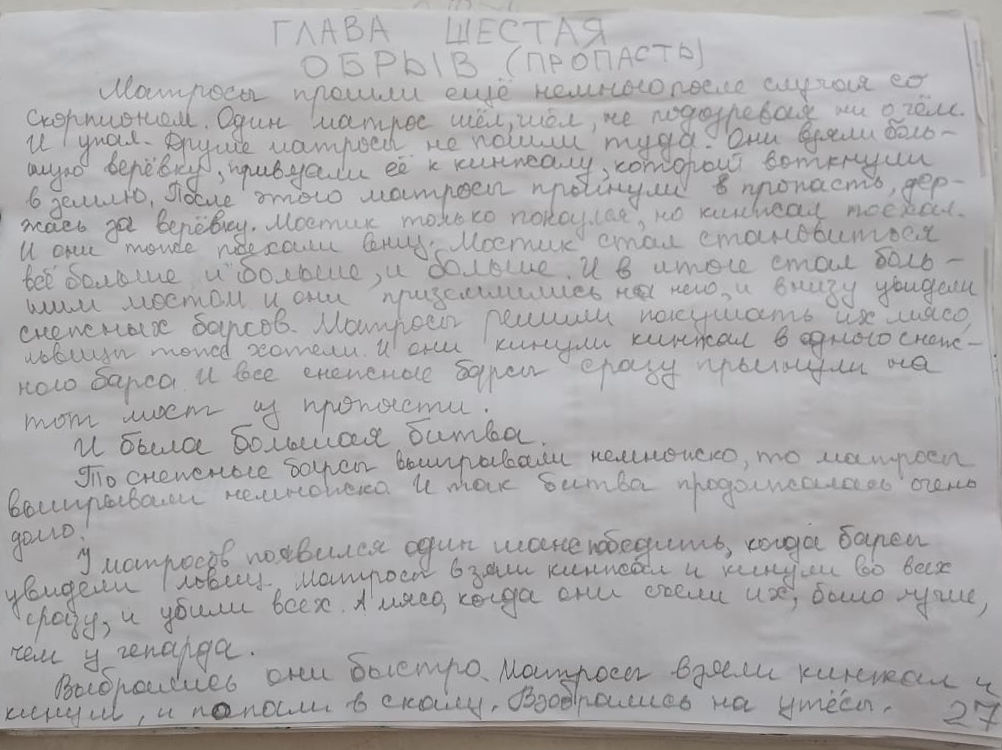 ГЛАВА ШЕСТАЯ
ОБРЫВ (ПРОПАСТЬ)
Матросы прошли ещё немного после случая со
скорпионом. Один матрос шёл, шёл, не подозревая ни о чём.
И упал. Другие матросы не пошли туда. Они взяли боль-
шую верёвку, привязали её к кинжалу, который воткнули
в землю. После этого матросы прыгнули в пропасть, дер-
жась за верёвку. Мостик только покачулся, но кинжал поехал.
И они тоже поехали вниз. Мостик стал становиться
всё больше и больше, и больше. И в итоге стал боль-
шим мостом и они приземлились на него, и внизу увидели
снежных барсов. Матросы решили покушать их мясо,
львицы тоже хотели. И они кинули кинжал в одного снеж-
ного барса. И все снежные барсы сразу прыгнули на
тот мост из пропасти.
И была большая битва.
То снежные барсы выигрывали немножко, то матросы
выигрывали немножко. И так битва продолжалась очень
долго.
У матросов появился один шанс победить, когда барсы
увидели львиц. Матросы взяли кинжал и кинули во всех
сразу, и убили всех. А мясо, когда они съели их, было лучше,
чем у гепарда.
Выбрались они быстро. Матросы взяли кинжал и
кинули, и попали в скалу. Взобрались на утёсы.
27